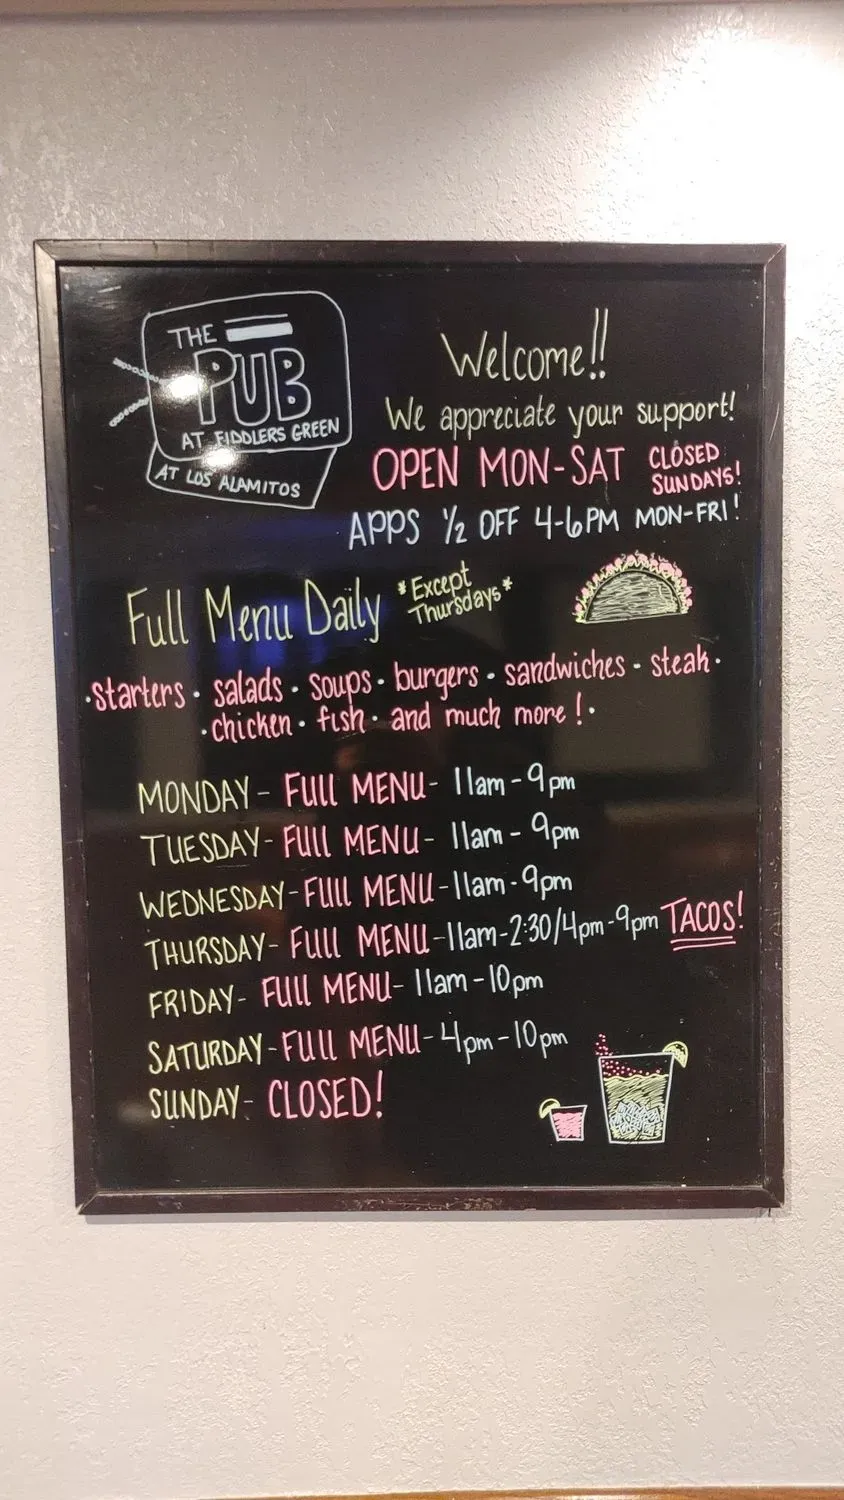 THE
PUB
AT FIDDLERS GREEN
AT LOS ALAMITOS
Welcome!!
We appreciate your support!
OPEN MON-SAT CLOSED SUNDAYS!
APPS ½ OFF 4-6PM MON-FRI!
Full Menu Daily *Except Thursdays*
·starters · salads · soups · burgers · sandwiches · steak·
·chicken · fish · and much more!·
MONDAY - FULL MENU - 11am - 9pm
TUESDAY - FULL MENU - 11am - 9pm
WEDNESDAY - FULL MENU - 11am - 9pm
THURSDAY - FULL MENU - 11am-2:30/4pm-9pm TACOS!
FRIDAY - FULL MENU - 11am - 10pm
SATURDAY - FULL MENU - 4pm - 10pm
SUNDAY - CLOSED!